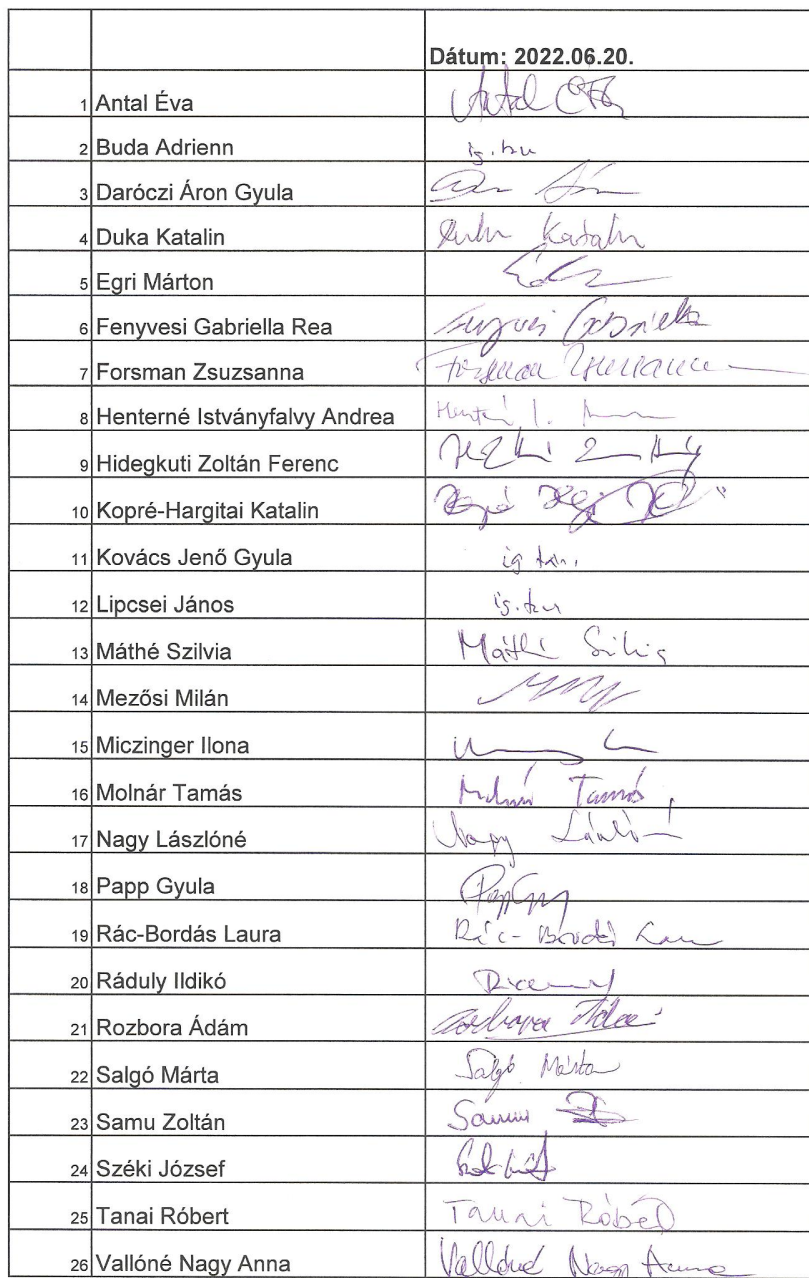 Dátum: 2022.06.20.
1 Antal Éva Antal Éva
2 Buda Adrienn
3 Daróczi Áron Gyula
4 Duka Katalin Duka Katalin
5 Egri Márton
6 Fenyvesi Gabriella Rea Fenyvesi Gabriella
7 Forsman Zsuzsanna Forsman Zsuzsanna
8 Henterné Istványfalvy Andrea
9 Hidegkuti Zoltán Ferenc
10 Kopré-Hargitai Katalin
11 Kovács Jenő Gyula ig tan.
12 Lipcsei János ig. tan
13 Máthé Szilvia Máthé Szilvia
14 Mezősi Milán
15 Miczinger Ilona
16 Molnár Tamás Molnár Tamás
17 Nagy Lászlóné Nagy Lászlóné
18 Papp Gyula
19 Rác-Bordás Laura Rác-Bordás Laura
20 Ráduly Ildikó
21 Rozbora Ádám Rozbora Ádám
22 Salgó Márta Salgó Márta
23 Samu Zoltán Samu
24 Széki József
25 Tanai Róbert Tanai Róbert
26 Vallóné Nagy Anna Vallóné Nagy Anna